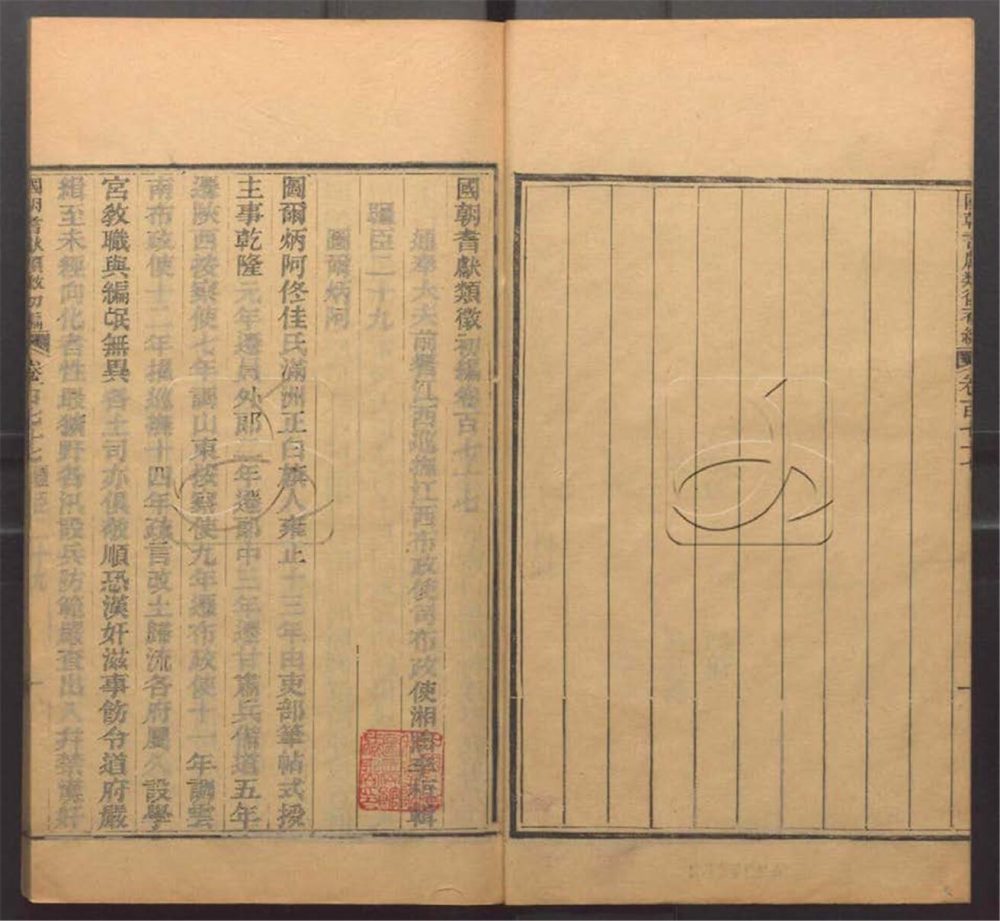 國朝耆獻類徵初編卷百七十七
通奉大夫前署江西巡撫江西布政使司布政使湘陰李桓輯
疆臣二十九
圖爾炳阿
圖爾炳阿佟佳氏滿洲正白旗人雍正十三年由吏部筆帖式授
主事乾隆元年遷員外郎二年遷郎中三年遷甘肅兵備道五年
遷陝西按察使七年調山東按察使九年遷布政使十一年調雲
南布政使十二年擢巡撫十四年疏言改土歸流各府屬久設學
宮教職與編氓無異各土司亦俱敬順恐漢奸滋事飭令道府嚴
緝至未經向化者性最獷野各汛設兵防範嚴查出入幷禁漢奸
國朝耆獻類徵初編 卷百七十七 疆臣二十九 一